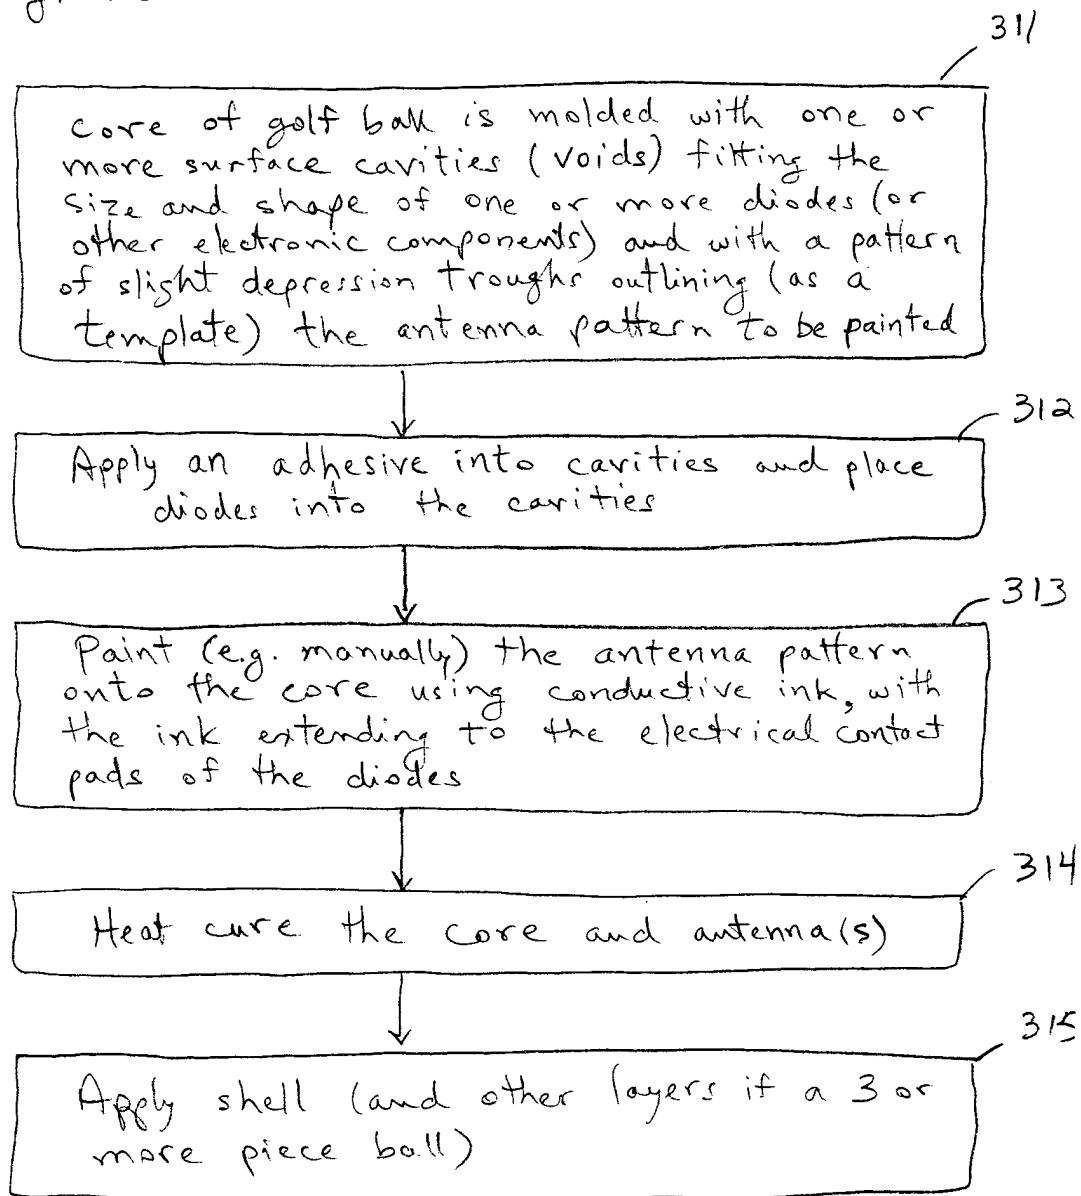 311
Core of golf ball is molded with one or
more surface cavities (voids) fitting the
size and shape of one or more diodes (or
other electronic components) and with a pattern
of slight depression troughs outlining (as a
template) the antenna pattern to be painted
312
Apply an adhesive into cavities and place
diodes into the cavities
313
Paint (e.g. manually) the antenna pattern
onto the core using conductive ink, with
the ink extending to the electrical contact
pads of the diodes
314
Heat cure the core and antenna(s)
315
Apply shell (and other layers if a 3 or
more piece ball)